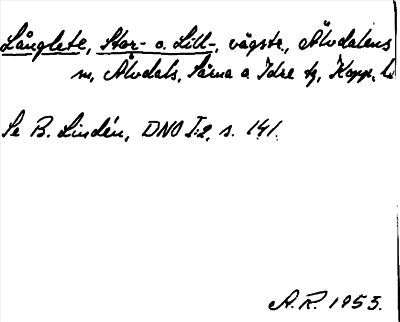 Långlete, Stor- o. Lill-, vägstr., Älvdalens
sn, Älvdals, Särna o Idre tg, Kopp. l.
Se B. Lindén, DNO I:2, s. 141.
A.R. 1953.